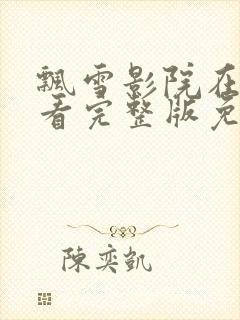 飘雪影院在
看完整版免
陳奕凯